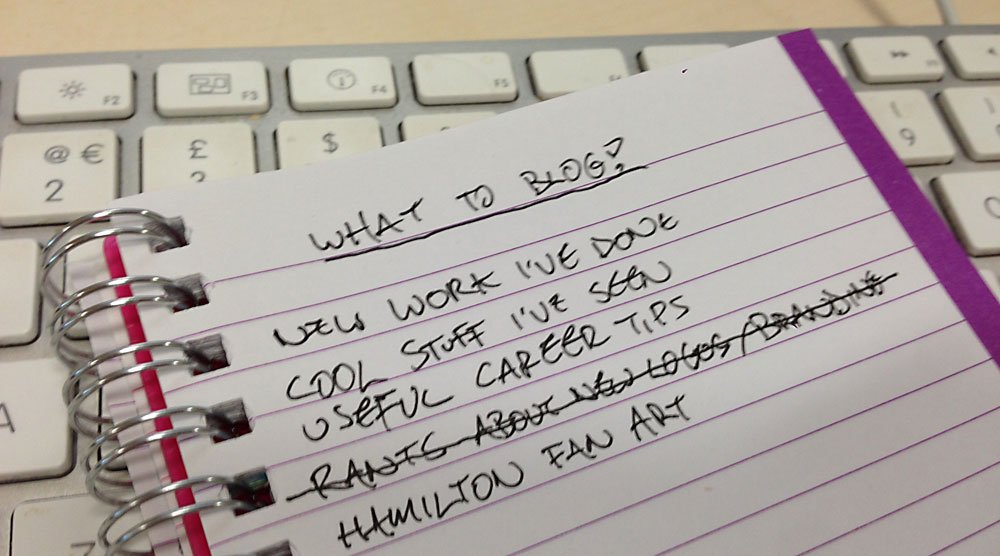 F2
F3
F4
F5
@ €
2
£
$
(
9
WHAT TO BLOG?
NEW WORK I'VE DONE
COOL STUFF I'VE SEEN
USEFUL CAREER TIPS
RANTS ABOUT NEW LOGOS / BRANDING
HAMILTON FAN ART